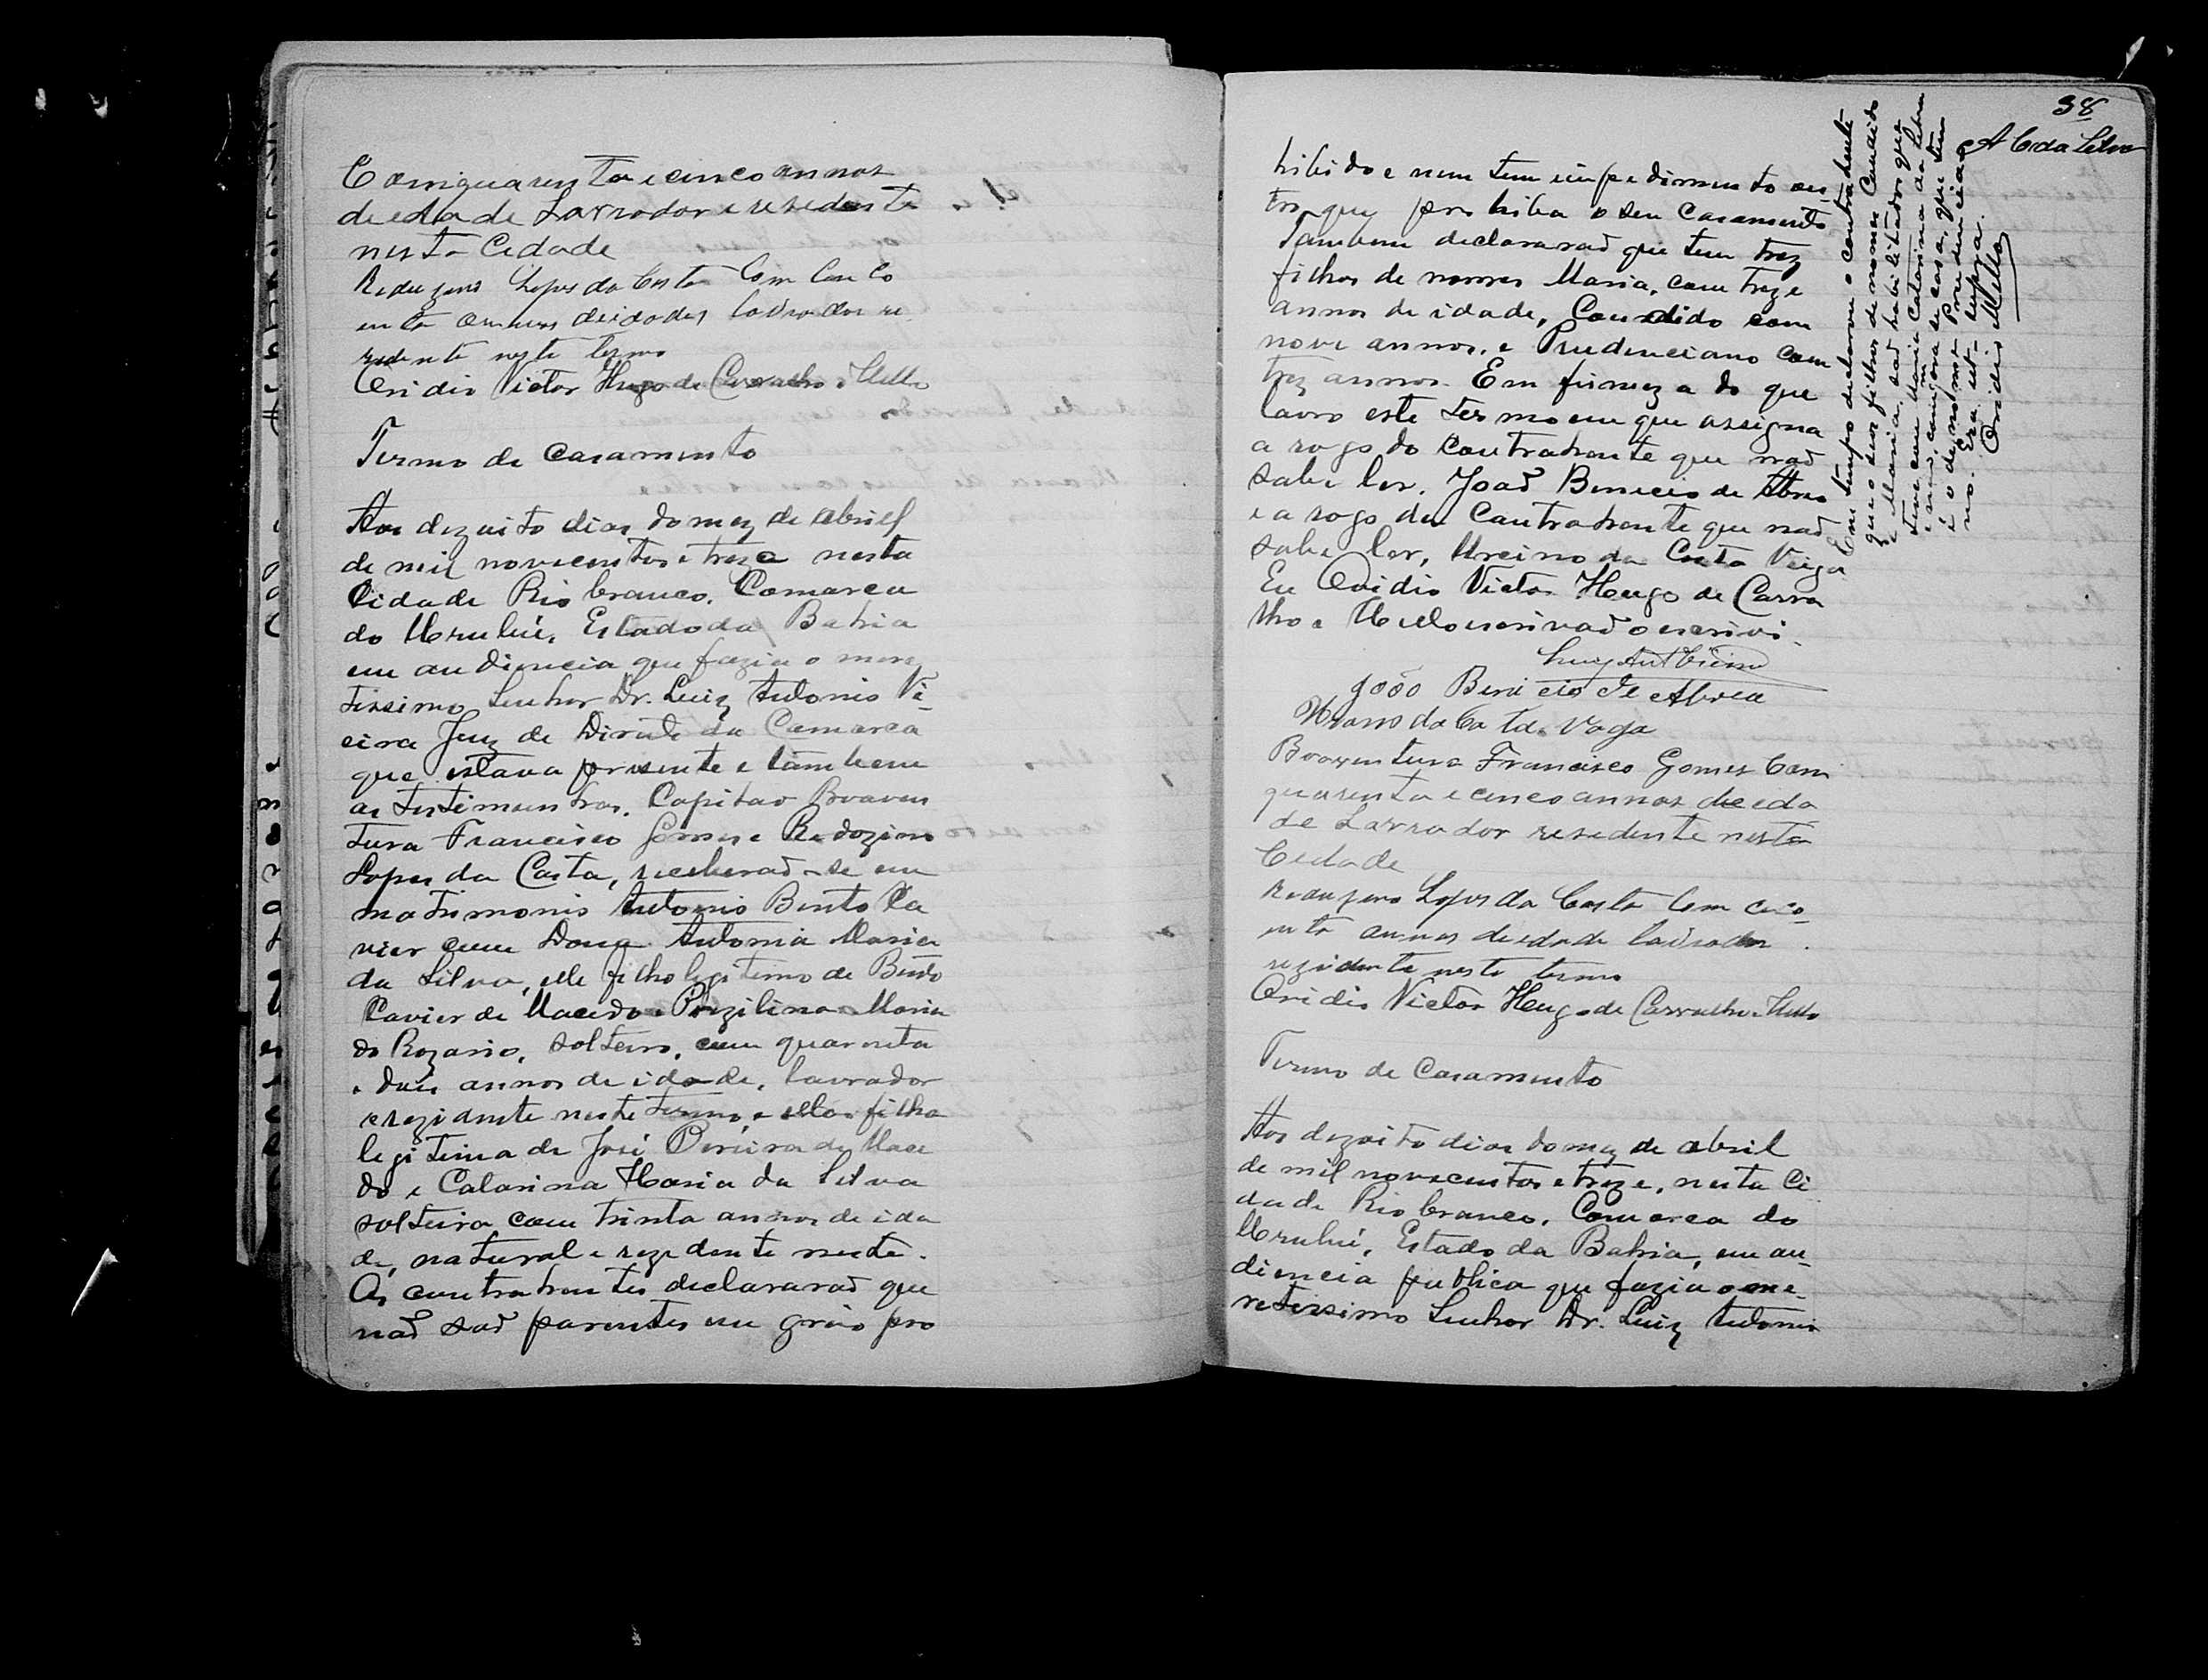 Com quarenta e cinco annos
de edade Lavrador e residente
nesta Cidade
Reduzino Lopes da Costa Com Cinco
enta annos de idades lavrador re
zidente neste termo
Ovidio Victor Hugo de Carvalho e Mello
Termo de Casamento
Aos dezoito dias do mez de abril
de mil novecentos e treze nesta
Cidade Rio branco, Comarca
do Urubú, Estado da Bahia
em audiencia que fazia o mere
tissimo Senhor Dr. Luiz Antonio Vi
eira Juiz de Direito da Comarca
que estava presente e tambem
as testimunhas, Capitão Boaven
tura Francisco Gomes e Redozino
Lopes da Costa, receberaõ-se em
matrimonio Antonio Bento Xa
vier com Dona Antonia Maria
da Silva, elle filho legitimo de Bento
Xavier de Macedo e Porzilina Maria
do Rozario, solteiro, com quarenta
e dois annos de idade, lavrador
e rezidente neste termo, e ella filha
legitima de José Pereira de Mace
do e Catarina Maria da Silva
solteira com trinta annos de ida
de, natural e rezidente neste.
Os contrahentes declararaõ que
naõ saõ parentes em gráo pro
38
A C da Silva
hibido e nem tem impedimento ou
tro que prohiba o seu Casamento
Tambem declararaõ que tem trez
filhos de nomes Maria, com treze
annos de idade, Candido com
nove annos, e Prudenciano com
trez annos. Em firmeza do que
lavro este termo em que assigna
a rogo do Contrahente que naõ
sabe ler, Joaõ Benicio de Abreu
e a rogo da Contrahente que naõ
sabe ler, Urcino da Costa Veiga
Eu Ovidio Victor Hugo de Carva
lho e Mello escrivaõ o escrivi.
Luiz Ant Vieira
João Benicio de Abreu
da Costa Vega
Boaventura Francisco Gomes Com
quarenta e cinco annos de eda
de Lavrador residente nesta
Cedade
Reduzino Lopes da Costa Com cinco
enta annos de edade lavrador.
rezidente neste termo
Ovidio Victor Hugo de Carvalho e Mello
Termo de Casamento
Aos dezoito dias do mez de abril
de mil novecentos e treze, nesta Ci
dade Rio branco, Comarca do
Urubú, Estado da Bahia, em au-
diencia publica que fazia o me-
retissimo Senhor Dr. Luiz Antonio
Em tempo declarou o contrahente
que os seus filhos de nomes Candido
e Maria, saõ habilitados que
teve com Maria Catarina da Silva
e naõ, com quem agora se casa, que tem
é o de nome Prudencia
no. Era ut supra.
Ovidio Mello